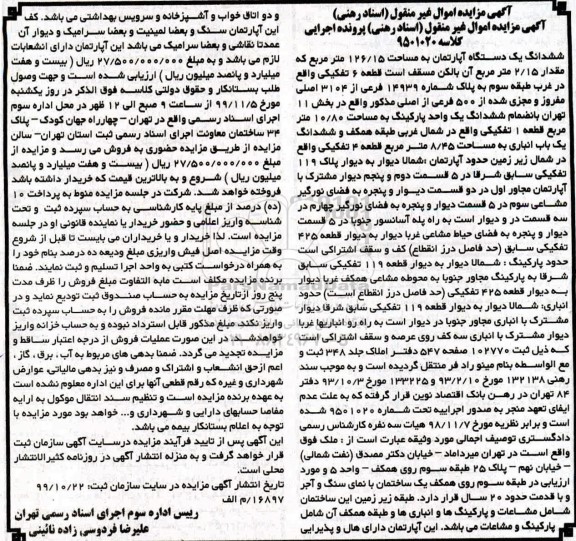 آگهی مزایده اموال غیر منقول (اسناد رهنی)
آگهی مزایده اموال غیر منقول (اسناد رهنی) پرونده اجرایی
کلاسه ۹۵۰۱۰۲۰
ششدانگ یک دستگاه آپارتمان به مساحت ۱۲۶/۱۵ متر مربع که
مقدار ۲/۱۵ متر مربع آن بالکن مسقف است قطعه ۶ تفکیکی واقع
در غرب طبقه سوم به پلاک شماره ۱۴۹۳۹ فرعی از ۳۱۰۴ اصلی
مفروز و مجزی شده از ۵۰۰ فرعی از اصلی مذکور واقع در بخش ۱۱
تهران بانضمام ششدانگ یک واحد پارکینگ به مساحت ۱۰/۸۰ متر
مربع قطعه ۱ تفکیکی واقع در شمال غربی طبقه همکف و ششدانگ
یک باب انباری به مساحت ۸/۴۵ متر مربع قطعه ۴ تفکیکی واقع
در شمال زیر زمین حدود آپارتمان :شمالا دیوار به دیوار پلاک ۱۱۹
تفکیکی سابق شرقا در ۵ قسمت دوم و پنجم دیوار مشترک با
آپارتمان مجاور اول در دو قسمت دیـوار و پنجره به فضای نورگیر
مشاعی سوم در ۵ قسمت دیوار و پنجره به فضای نورگیر چهارم در
سه قسمت در و دیوار است به راه پله آسانسور جنوبا در ۵ قسمت
دیوار و پنجره به فضای حیاط مشاعی غربا دیوار به دیوار قطعه ۴۲۵
تفکیکی سابق (حد فاصل درز انقطاع) کف و سقف اشتراکی است
حدود پارکینگ : شمالا دیوار به دیوار قطعه ۱۱۹ تفکیکی سابق
شرقا به پارکینگ مجاور جنوبا به محوطه مشاعی همکف غربا دیوار
به دیوار قطعه ۴۲۵ تفکیکی (حد فاصل درز انقطاع است) حدود
انباری: شمالا دیوار به دیوار قطعه ۱۱۹ تفکیکی سابق شرقا دیوار
مشترک با انباری مجاور جنوبا در دیوار است به راه رو انباریها غربا
دیوار مشترک با انباری سه کف روی عرصه و سقف اشتراکی است
که ذیل ثبت ۱۰۲۷۷۰ صفحه ۵۴۷ دفتر املاک جلد ۳۴۸ ثبت و
مع الواسطه بنام مینو راد فر منتقل گردیده است و به موجب سند
رهنی ۱۳۲۱۳۸ مورخ ۹۳/۲/۱۰ و ۱۳۳۲۲۵ مورخ ۹۳/۱۰/۳ دفتر
۸۴ تهران در رهن بانک اقتصاد نوین قرار گرفته که به علت عدم
ایفای تعهد منجر به صدور اجراییه تحت شماره ۹۵۰۱۰۲۰ شده
است و برابر نظریه مورخ ۹۸/۱۱/۷ هیات سه نفره کارشناس رسمی
دادگستری توصیف اجمالی مورد وثیقه عبارت است از : ملک فوق
واقع است در تهران میرداماد – خیابان دکتر مصدق (نفت شمالی)
– خیابان نهم – پلاک ۲۵ طبقه سوم روی همکف – واحد ۵ و مورد
ارزیابی در طبقه سوم روی همکف یک ساختمان با نمای سنگ و آجر
و با قدمت حدود ۲۰ سال قرار دارد. طبقه زیر زمین این ساختمان
شامل مشاعات و پارکینگ ها و انباری ها و طبقه همکف آن شامل
پارکینگ و مشاعات می باشد. این آپارتمان دارای هال و پذیرایی
و دو اتاق خواب و آشـپزخانه و سرویس بهداشتی می باشد. کف
این آپارتمان سنگ و بعضا لمینیت و بعضا سرامیک و دیوار آن
عمدتا نقاشی و بعضا سرامیک می باشد این آپارتمان دارای انشعابات
لازم می باشد و به مبلغ ۲۷/۵۰۰/۰۰۰/۰۰۰ ریال ( بیست و هفت
میلیارد و پانصد میلیون ریال ) ارزیابی شده است و جهت وصول
طلب بستانکار و حقوق دولتی کلاسه فوق الذکر در روز یکشنبه
مورخ ۹۹/۱۱/۵ از ساعت ۹ صبح الی ۱۲ ظهر در محل اداره سوم
اجرای اسناد رسمی واقع در تهران – چهارراه جهان کودک – پلاک
۳۴ ساختمان معاونت اجرای اسناد رسمی ثبت استان تهران– سالن
مزایده از طـریـق مزایده حضوری به فروش می رسد و مزایده از
مبلغ ۲۷/۵۰۰/۰۰۰/۰۰۰ ریال (بیسـت و هفت میلیارد و پانصد
میلیون ریال ) شـروع و به بالاترین قیمت که خریدار داشته باشد
فروخته خواهد شد. شرکت در جلسه مزایده منوط به پرداخت ۱۰
(ده) درصد از مبلغ پایه کارشناسی به حساب سپرده ثبت و تحت
شناسه واریز اعلامی و حضور خریدار یا نماینده قانونی او در جلسه
مزایده است. لذا خریدار و یا خریداران می بایست تا قبل از شروع
وقت مزایـده اصل فیش واریزی مبلغ ودیعه ده درصد بنام خود را
به همراه درخواست کتبی به واحد اجرا تسلیم و ثبت نمایند. ضمنا
برنده مزایده مکلف است مابه التفاوت مبلغ فروش را ظرف مدت
پنج روز ازتاریخ مزایده به حساب صندوق ثبت تودیع نماید و در
صورتی که ظرف مهلت مقرر مانده فروش را به حساب سپرده ثبت
واریز نکند، مبلغ مذکور قابل استرداد نبوده و به حساب خزانه واریز
خواهد شد. در این صورت عملیات فروش از درجه اعتبار ساقط و
مزایـده تجدید می گردد. ضمنا بدهی های مربوط به آب . برق . گاز .
اعم ازحق انشعاب و اشتراک و مصرف و نیز بدهی مالیاتی، عوارض
شهرداری و غیره که رقم قطعی آنها برای این اداره معلوم نشده است
به عهده برنده مزایده است و تنظیم سند انتقال موکول به ارایه
مفاصا حسابهای دارایی و شهرداری و... خواهد بود مورد مزایده با
توجه به اعلام بستانکار بیمه می باشد.
این آگهی پس از تایید فرآیند مزایده درسایت آگهی سازمان ثبت
قرار خواهد گرفت و به منزله انتشار آگهی در روزنامه کثیرالانتشار
محلی است.
تاریخ انتشار آگهی مزایده در سایت سازمان ثبت: ۹۹/۱۰/۲۲
۱۶۸۹۷/م الف
رییس اداره سوم اجرای اسناد رسمی تهران
علیرضا فردوسی زاده نائینی